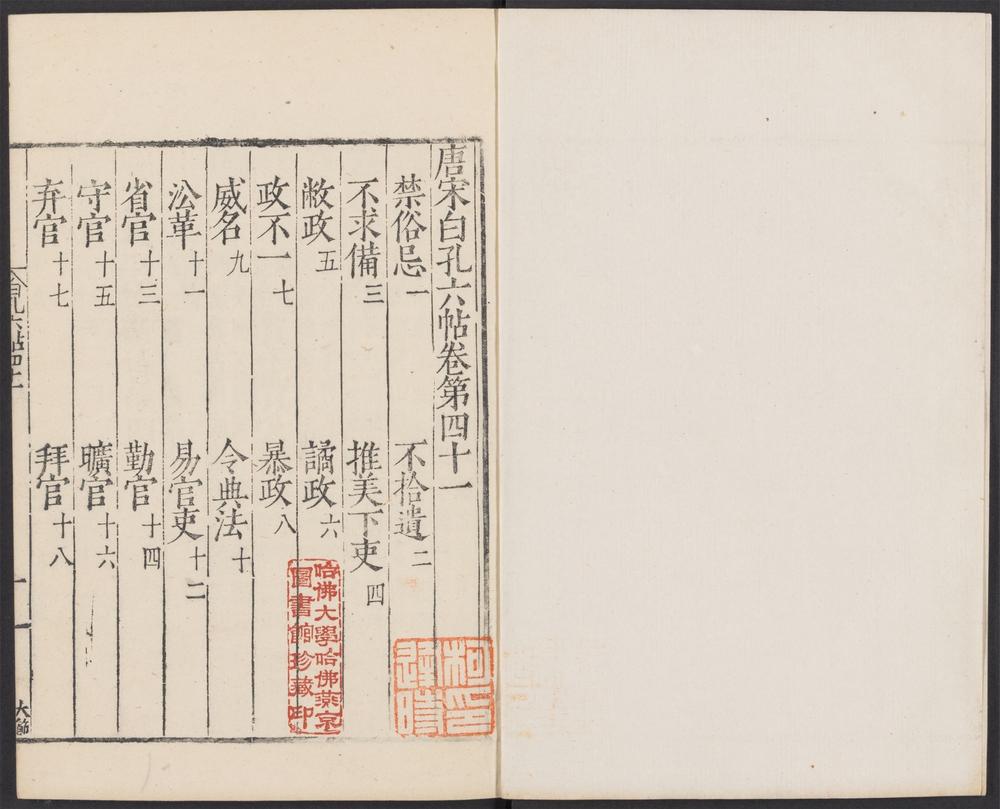 唐宋白孔六帖卷第四十一
禁俗忌一 不拾遺二
不求備三 推美下吏四
敝政五 譎政六
政不一七 暴政八
威名九 令典法十
㳂革十一 易官吏十二
省官十三 勤官十四
守官十五 曠官十六
弃官十七 拜官十八
大節
哈佛大學哈佛燕京
圖書館珍藏印